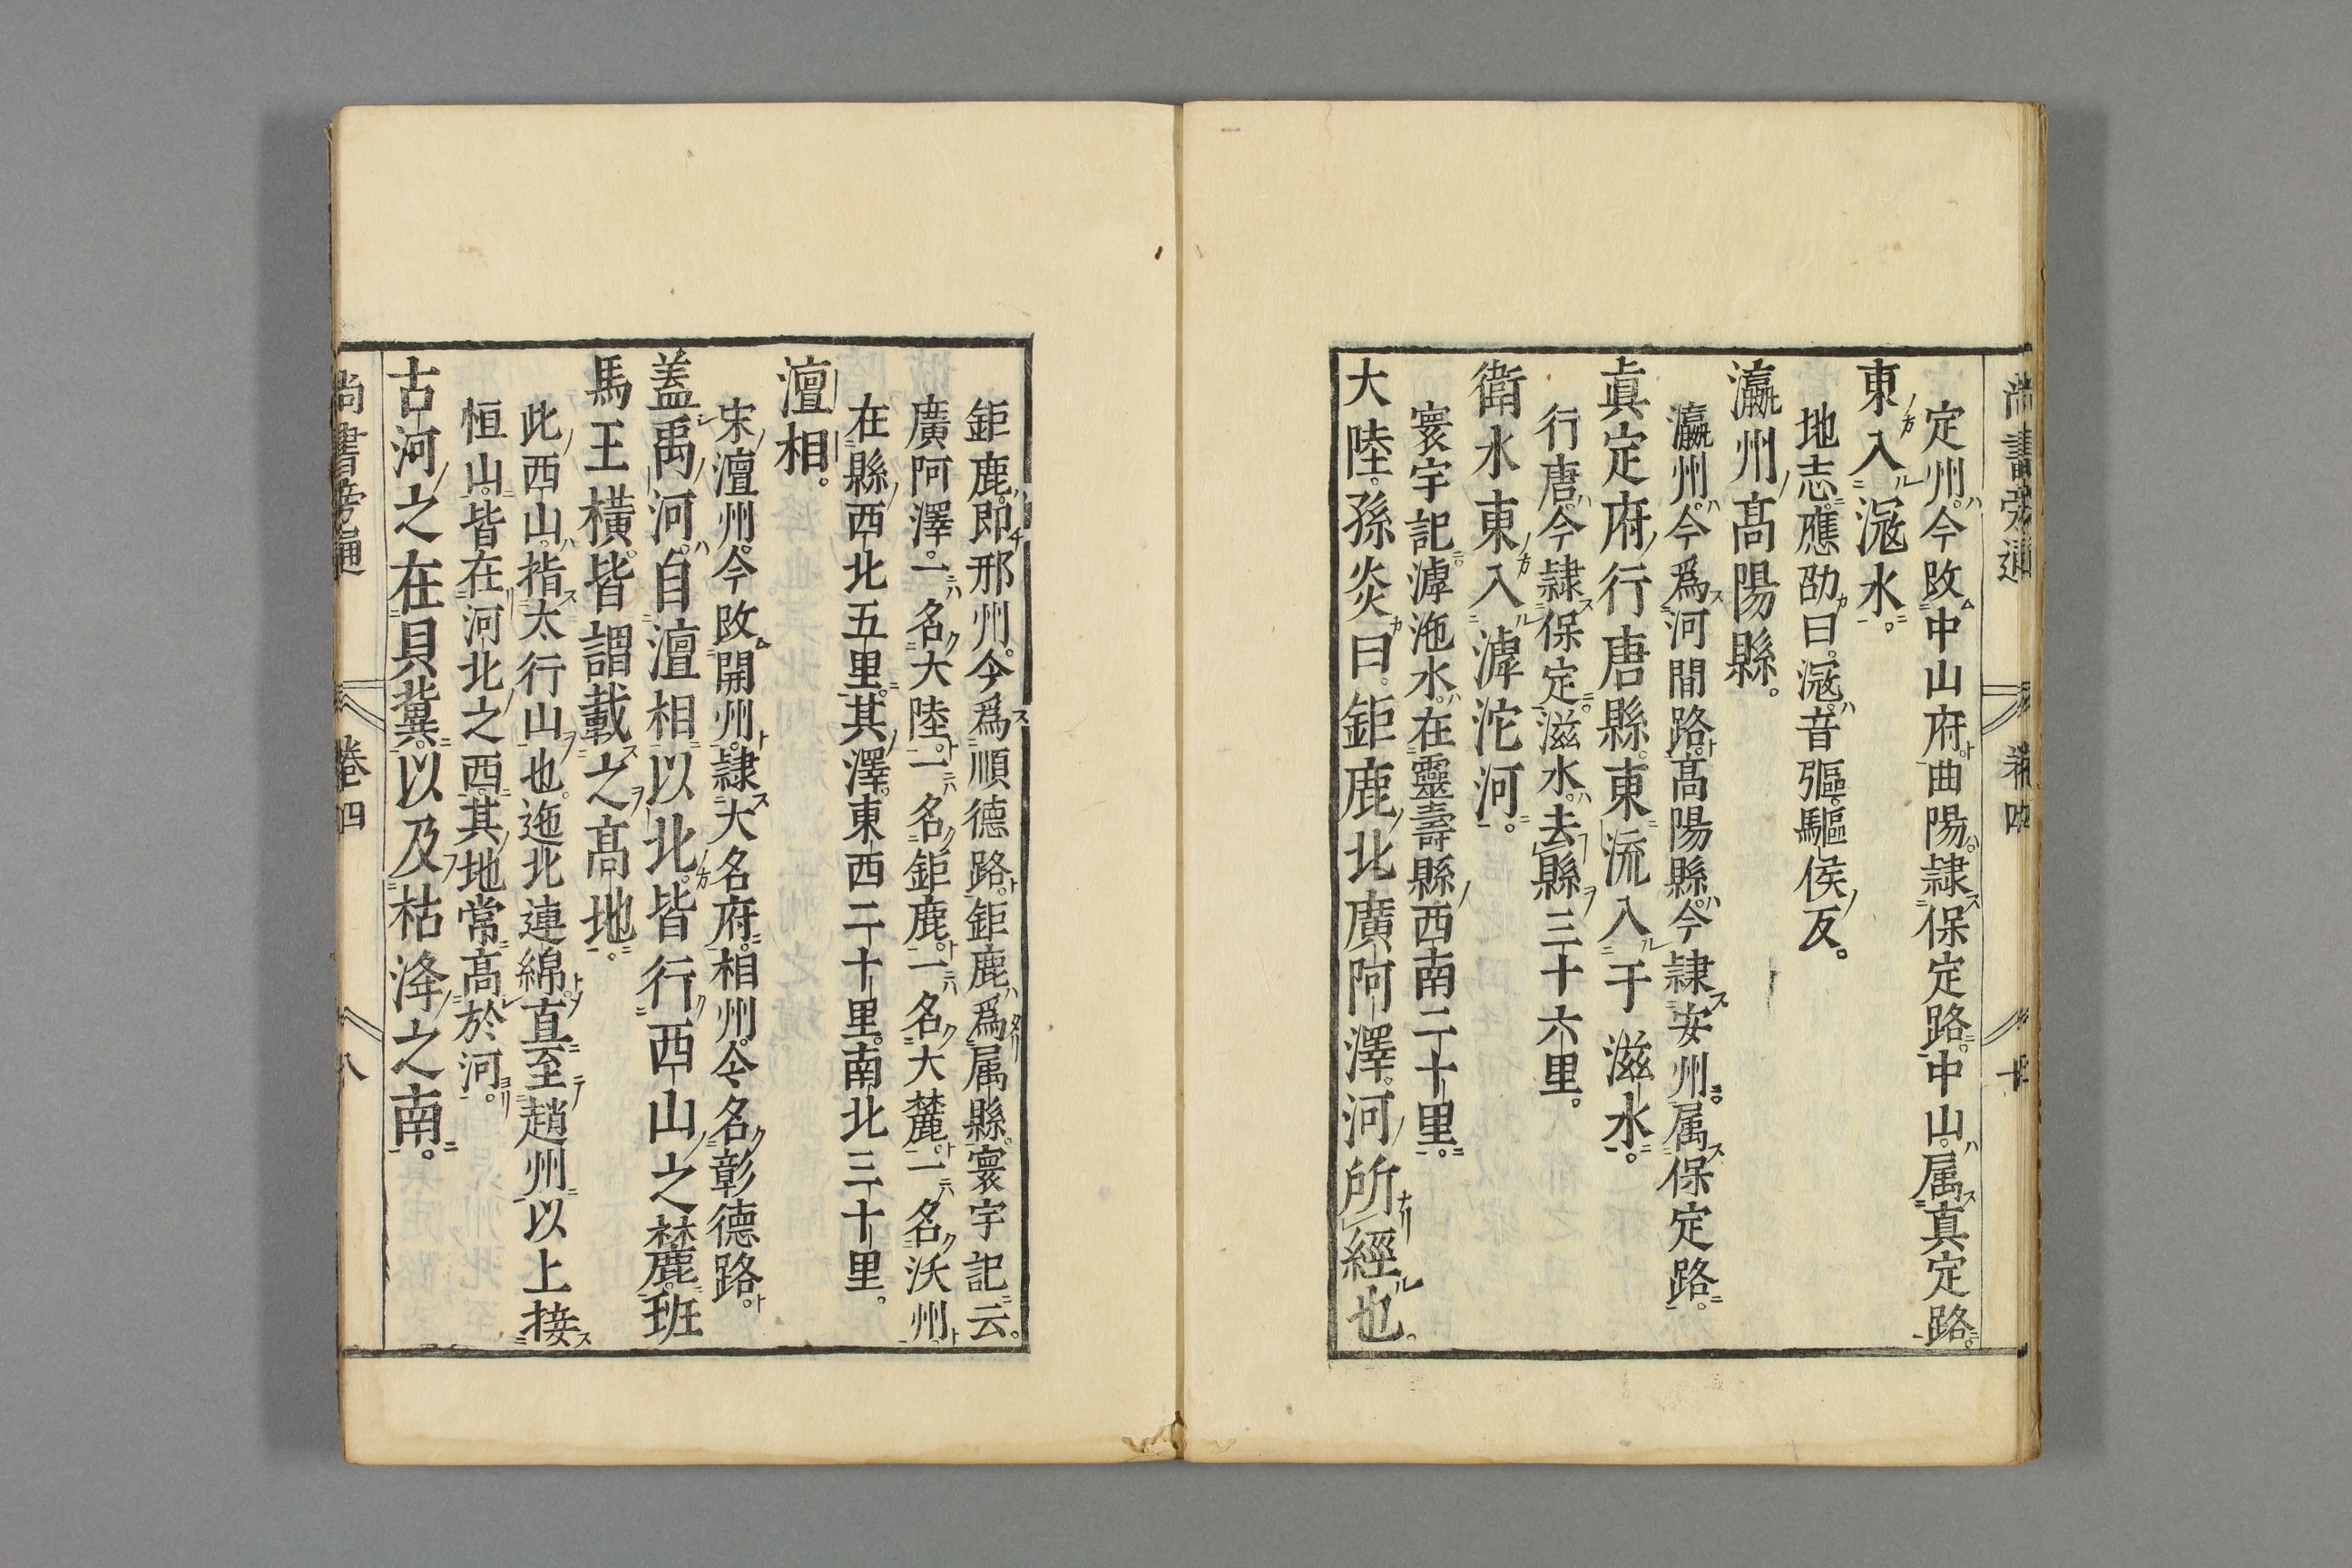 定州。今改中山府。曲陽。隷保定路。中山。属真定路。
東入滱水。
地志。應劭曰。滱。音彄。驅侯反。
瀛州高陽縣。
瀛州。今爲河間路。高陽縣。今隷安州。属保定路。
真定府行唐縣。東流入于滋水。
行唐。今隷保定。滋水。去縣三十六里。
衛水東入滹沱河。
寰宇記。滹沲水。在靈壽縣西南二十里。
大陸。孫炎曰。鉅鹿北廣阿澤。河所經也。
鉅鹿。即邢州。今爲順德路。鉅鹿。爲属縣。寰宇記云。
廣阿澤。一名大陸。一名鉅鹿。一名大麓。一名沃州。
在縣西北五里。其澤。東西二十里。南北三十里。
澶相。
宋澶州。今改開州。隷大名府。相州。今名彰德路。
蓋禹河。自澶相以北。皆行西山之麓。班
馬王横。皆謂載之高地。
此西山。指太行山也。迤北連綿。直至趙州以上接
恒山。皆在河北之西。其地常高於河。
古河之在貝冀。以及枯洚之南。
尚書旁通 卷四 八